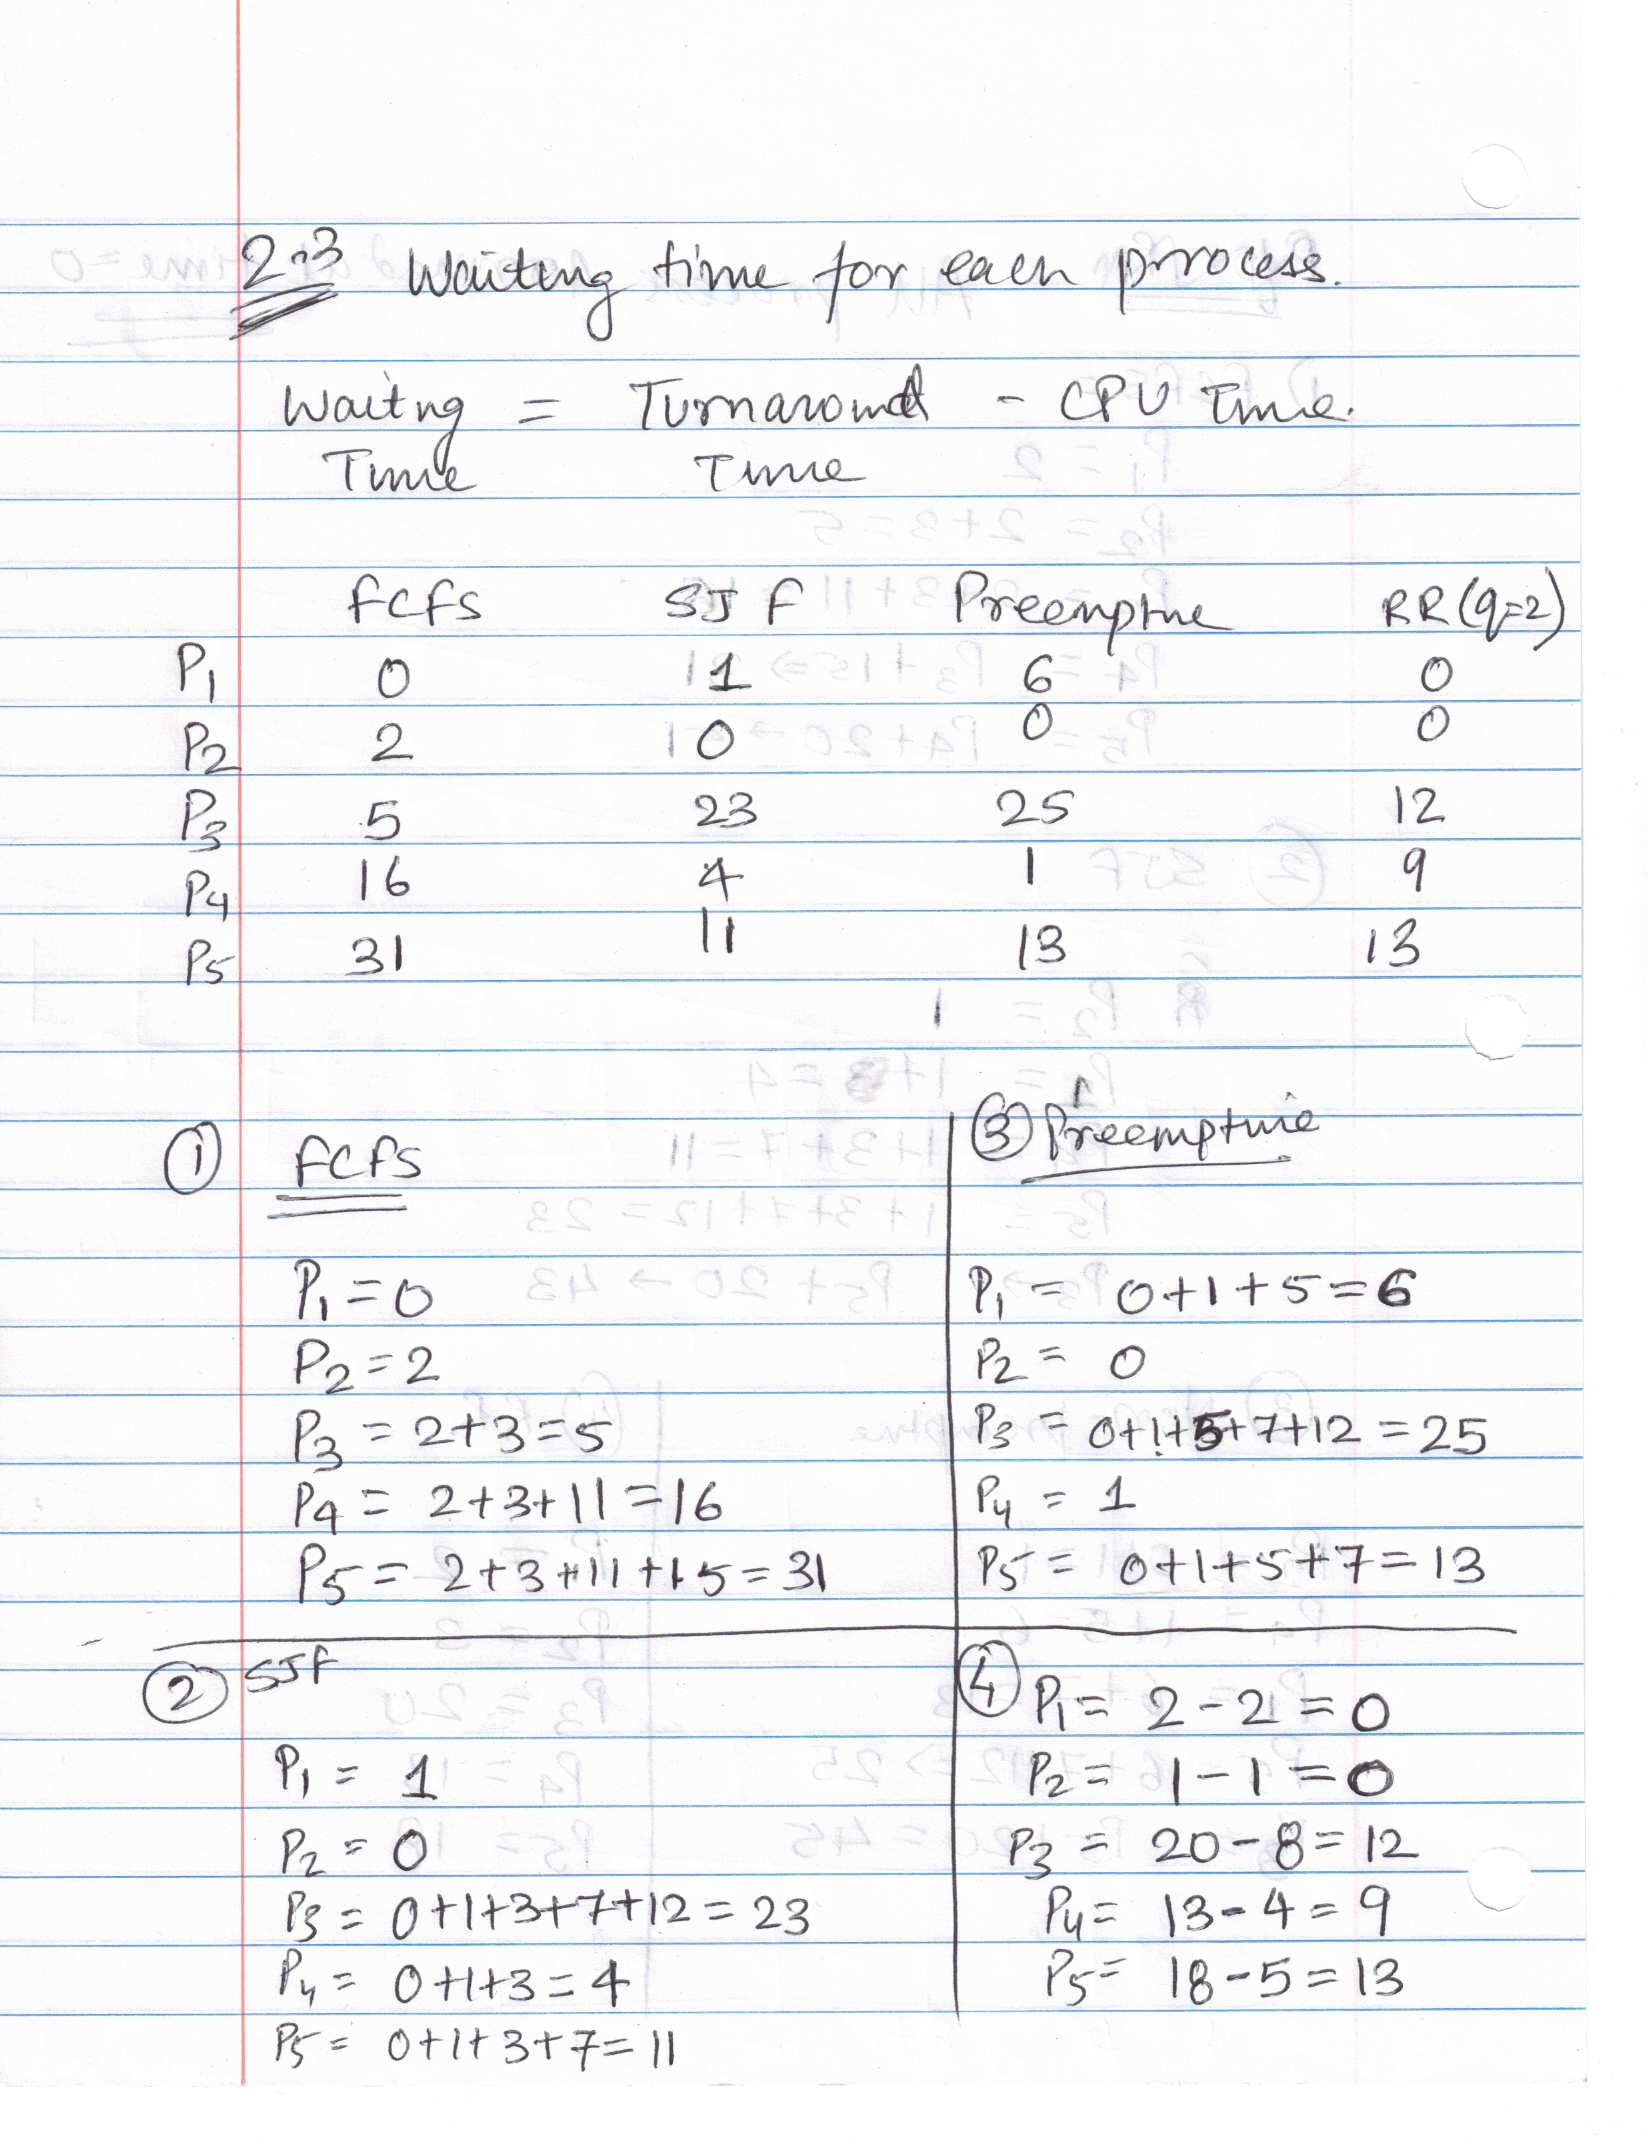 2.3 Waiting time for each process.
Waitng = Turnaround - CPU Time.
Time Time
FCFS SJF Preemptive RR(q=2)
P1 0 1 6 0
P2 2 0 0 0
P3 5 23 25 12
P4 16 4 1 9
P5 31 11 13 13
① FCFS
P1 = 0
P2 = 2
P3 = 2+3=5
P4 = 2+3+11=16
P5 = 2+3+11+15=31
③ Preemptive
P1 = 0+1+5=6
P2 = 0
P3 = 0+1+5+7+12=25
P4 = 1
P5 = 0+1+5+7=13
② SJF
P1 = 1
P2 = 0
P3 = 0+1+3+7+12=23
P4 = 0+1+3=4
P5 = 0+1+3+7=11
④ P1 = 2-2=0
P2 = 1-1=0
P3 = 20-8=12
P4 = 13-4=9
P5 = 18-5=13